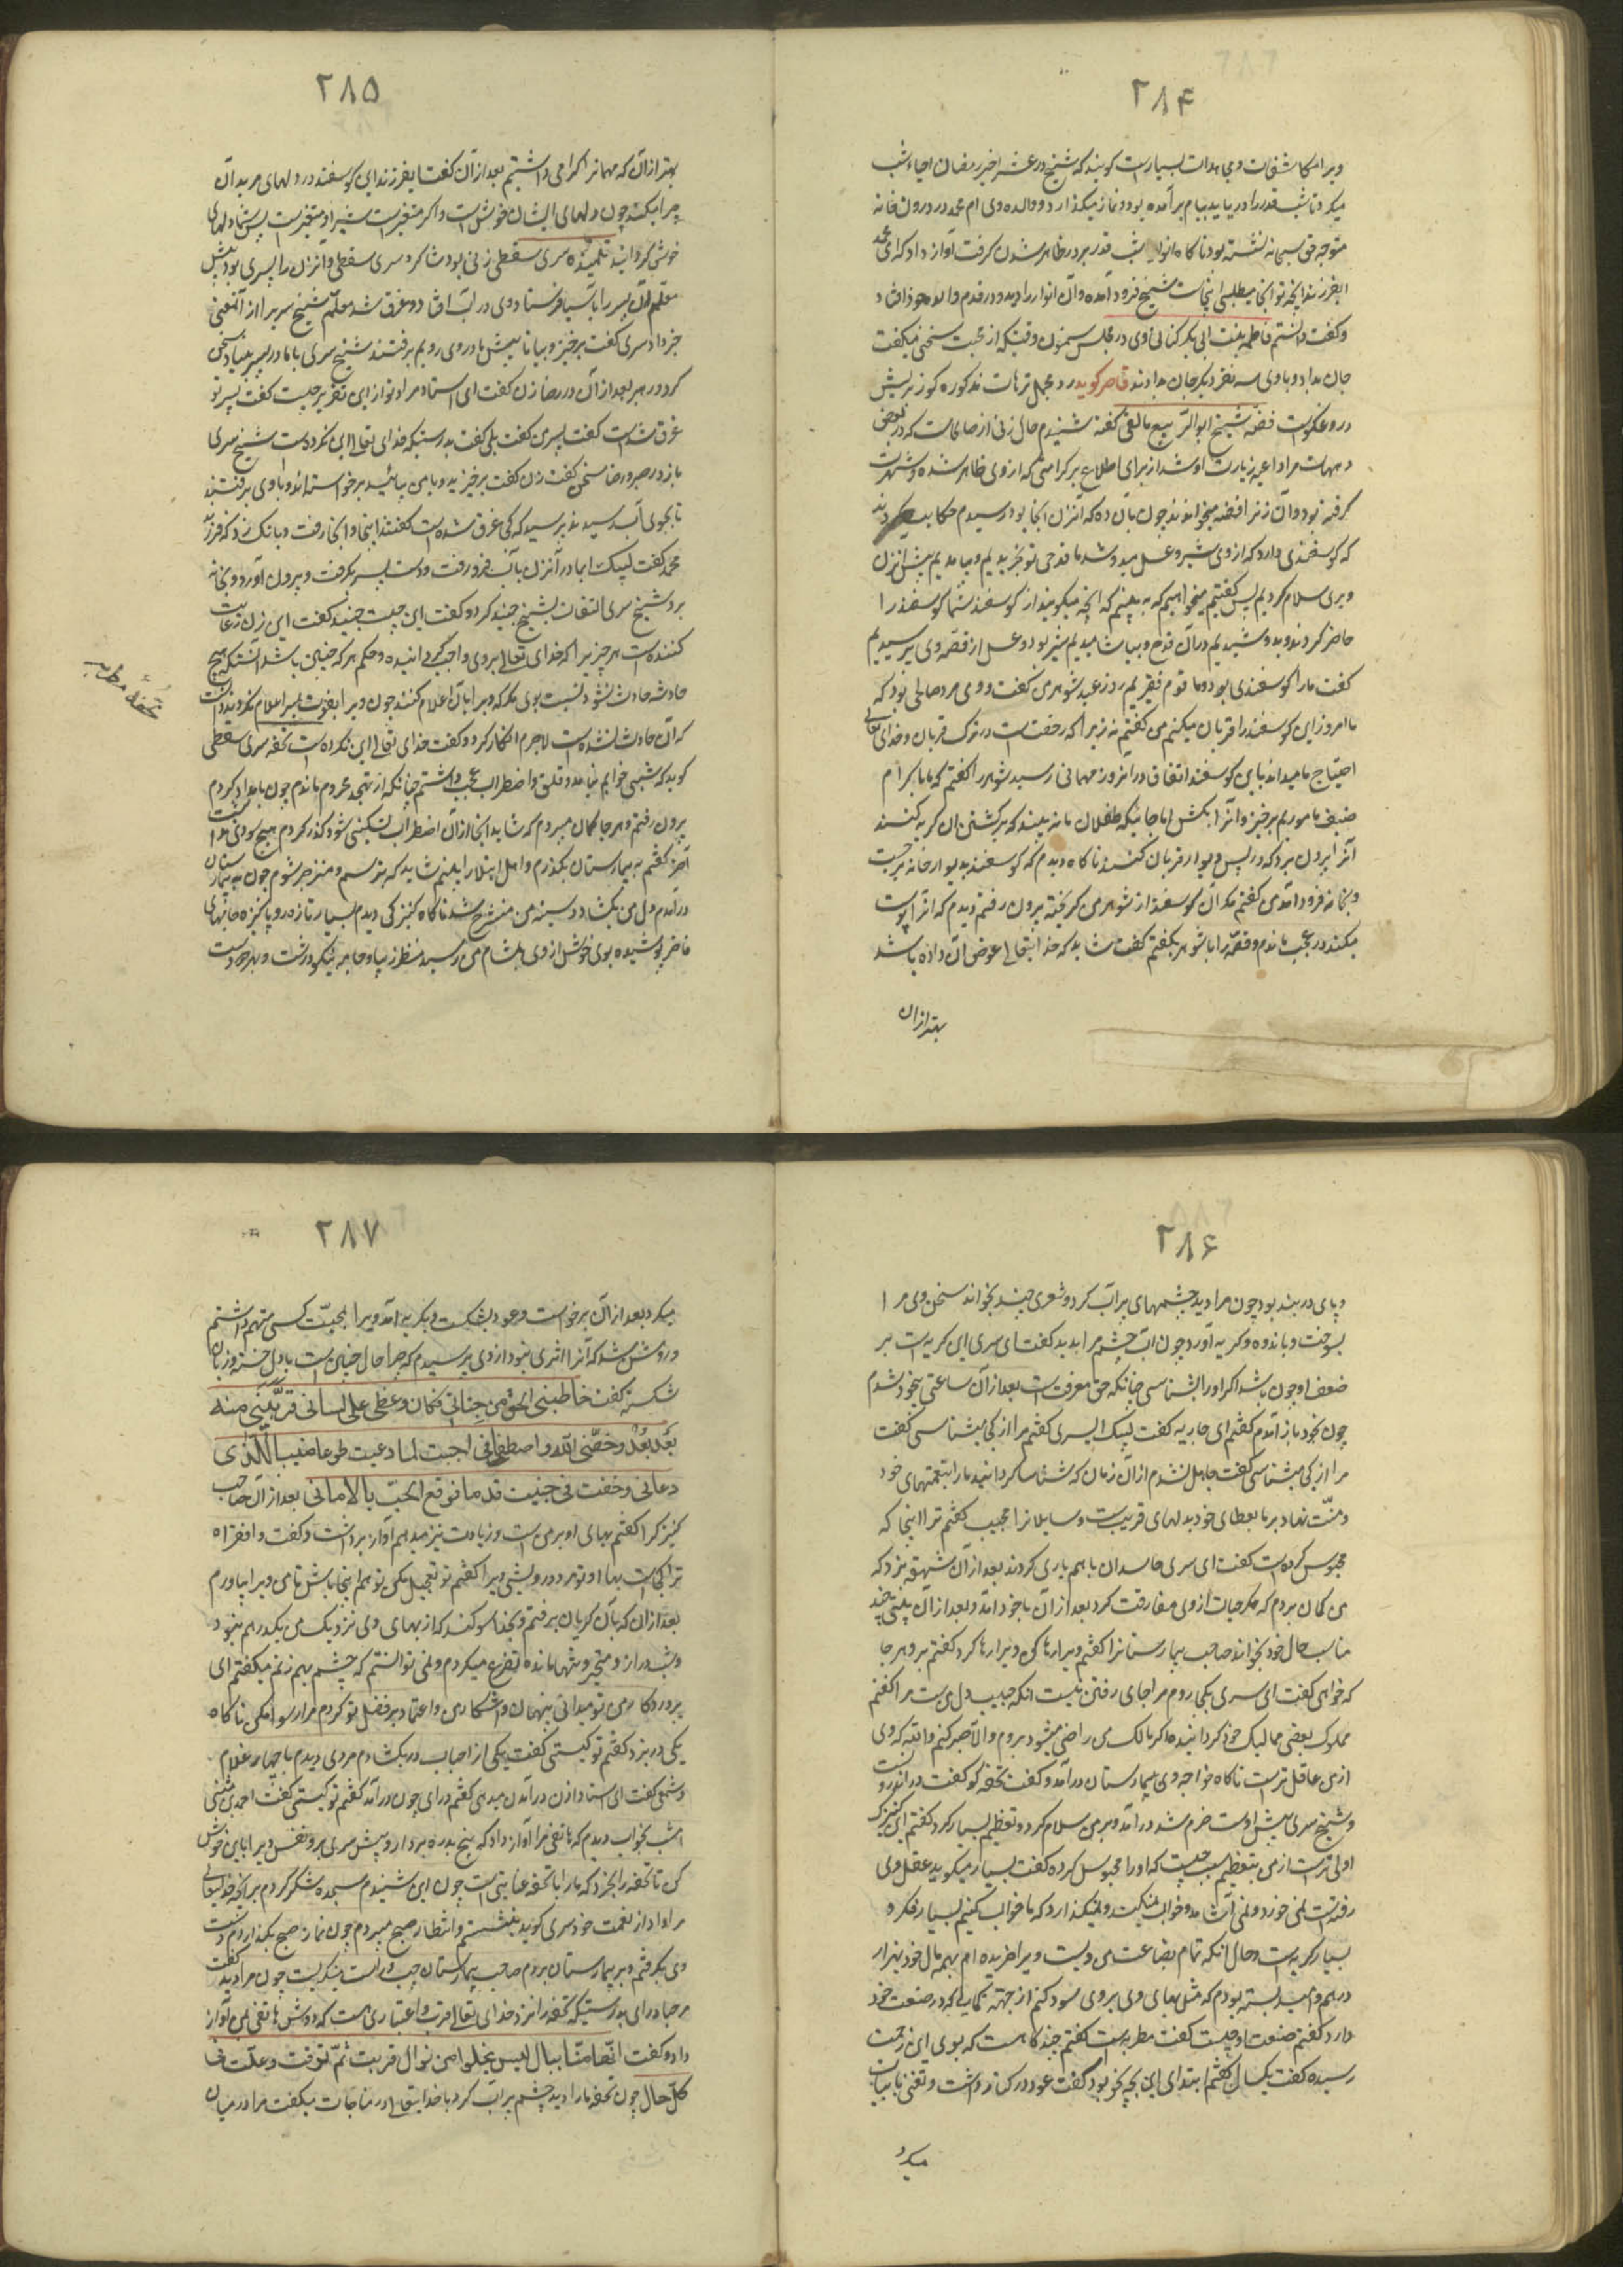 ۲۸۴
ویرا مکاشفات و مجاهدات بسیارست گویند که شیخ در عشر اخیر رمضان احیاء شب
میکرد تا شب قدر را دریابد ببام برآمده بود و نماز میگذارد و والده وی ام محمد در درون خانه
متوجه حق سبحانه نشسته بود ناگاه انوار شب قدر برو در ظاهر شدن گرفت آواز داد که ای محمد
ای فرزند آنچه تو آنجا میطلبی اینجاست شیخ فرود آمده و آن انوار را دید و در قدم والده خود افتاد
و گفت دانستم فاطمه بنت ابی بکر کتانی وی در مجلس سمنون وقتیکه از محبت سخنی میگفت
جان بداد و با وی سه نفر دیگر جان بدادند قاصر گوید
در وعکوست فضّه شیخ ابو الرّبیع مالقی گفته شنیدم حال زنی از صالحات که در بعض
دیهات مرا داعیه زیارت او شد از برای اطلاع بر کرامتی که از وی ظاهر شده و شهرت
گرفته بود و آن زنرا فضّه میخواندند چون بآن ده که آنزن آنجا بود رسیدم حکایت کردند
که گوسفندی دارد که از وی شیر و عسل میدوشد ما قدحی نو بخریدیم و بیامدیم پیش آنزن
و بری سلام کردیم پس گفتیم میخواهیم که به بینیم که آنچه میگویند از گوسفند شما گوسفند را
حاضر کردند و بدوشیدیم در آن قدح و بیاشامیدیم شیر بود و عسل از قصّه وی پرسیدیم
گفت ما را گوسفندی بود و ما قوم فقیریم روز عید شوهر من گفت و وی مرد صالحی بود که
ما امروز این گوسفند را قربان میکنیم من گفتم نه زیرا که رخصت است در ترک قربان و خدای تعالی
احتیاج ما میداند باین گوسفند اتفاقا در انروز مهمانی رسید شوهر را گفتم که ما باکرام
ضیف ماموریم برخیز و آنرا بکش اما جائیکه طفلان ما نه بینند که بر کشتن آن گریه کنند
آنرا بیرون برد که در پس دیوار قربان کند ناگاه دیدم که گوسفند بدیوار خانه برجست
و بخانه فرود آمد من گفتم مگر آن گوسفند از شوهر من گریخته بیرون رفتم دیدم که آنرا پوست
میکند در عجب ماندم و قصّه را با شوهر بگفتم گفت شاید که خدایتعالی عوض آن داده باشد
بهتر ازان
۲۸۵
بهتر از آن که مهمانرا اکرامی داشتیم بعد از آن گفت ای فرزند این گوسفند در دلهای مریدان
چرا میکند چون دلهای ایشان خوش است و اگر متغیرست شیر او متغیرست پس شما دلهای
خوش گردانید تلمیذه سری سقطی زنی بود شاگرد سری سقطی و آنزن را پسری بود پیش
معلّم آن پسر را بآسیا فرستاد وی در آب افتاد و غرق شد معلّم شیخ سریرا از آنمعنی
خبر داد سری گفت برخیز و بیا تا پیش مادر وی رویم برفتند شیخ سری با مادر پسر بنیاد سخن
کرد در صبر بعد از آن در رضا زن گفت ای استاد مراد تو از این تقریر چیست گفت پسر تو
غرق شدست گفت پسر من گفت بلی گفت بدرستیکه خدای تعالی این نکرد‌است شیخ سری
باز در صبر و رضا سخن گفت زن گفت برخیزید و با من بیائید برخواستند و با وی برفتند
تا بجوی آب رسیدند پرسید که کی غرق شده است گفتند اینجا و آنجا رفت و بانک زد که فرزند
محمد گفت لبیک ای مادر آنزن بآب فرو رفت و دست پسر بگرفت و بیرون آورد و بخانه
برد شیخ سری التفات بشیخ جنید کرد و گفت این چیست جنید گفت این زن رعایت
کننده است هر چیز را که خدای تعالی بر وی واجب گردانیده و حکم هر که چنین باشد آنستکه هیچ
حادثه حادث نشود نسبت بوی مگر که ویرا بآن اعلام کنند چون ویرا بفوت پسر اعلام نکردند دانست
که آن حادث نشده است لاجرم انکار کرد و گفت خدای تعالی این نکرده است تحفه سری سقطی
گوید که شبی خوابم نیامد و قلق و اضطراب عجب داشتم چنانکه از تهجد محروم ماندم چون بامداد کردم
بیرون رفتم و هر جا گمان میبردم که شاید آنجا از آن اضطراب تسکینی شود گذر کردم هیچ سودی نداشت
آخر گفتم به بیمارستان بگذرم و اهل ابتلا را ببینم شاید که بترسم و منزجر شوم چون به بیمارستان
درآمدم دل من بگشاد و سینه من منشرح شد ناگاه کنیزکی دیدم بسیار تازه رو و پاکیزه جامهای
فاخر پوشیده بوی خوش از وی بمشام من رسید منظر زیبا و جامه نیکو داشت و بهر دو دست
تحفهٔ مطربه
۲۸۶
و پای در بند بود چون مرا دید چشمهای پرآب کرد و شعری چند بخواند سخن وی مرا
بسوخت و باندوه و گریه آورد چون آب چشم مرا بدید گفت ای سری این گریه است بر
ضعف او چون باشد اگر او را بشناسی چنانکه حق معرفت است بعد از آن ساعتی بیخود شدم
چون بخود باز آمدم گفتم ای جاریه گفت لبیک ای سری گفتم مرا از کی میشناسی گفت
مرا از کی میشناسی گفت جاهل نشدم از آن زمان که شناسا گردانید ما را بنعمتهای خود
و منّت نهاد بر ما بعطای خود بدلهای قریب است و سایلانرا مجیب گفتم ترا اینجا که
محبوس کرده است گفت ای سری حاسدان با هم یاری کردند بعد از آن شهقه بزد که
من گمان بردم که مگر حیات از وی مفارقت کرد بعد از آن با خود آمد و بعد از آن بیتی چند
مناسب حال خود بخواند صاحب بیمارستانرا گفتم ویرا رها کن ویرا رها کرد گفتم برو هر جا
که خواهی گفت ای سری بکجا روم مرا جای رفتن نیست آنکه حبیب دل من است مرا گفتم
مملوک بعضی ممالیک خود گردانیده اگر مالک من راضی میشود بروم والا صبر کنم و البته که وی
از من عاقل ترست ناگاه خواجه وی به بیمارستان درآمد و گفت تحفه کو گفت در اندرونست
و شیخ سری پیش اوست خرم شد و درآمد و بر من سلام کرد و تعظیم بسیار کرد گفتم این کنیزک
اولی ترست از من بتعظیم سبب چیست که او را محبوس کرده گفت بسیار میگوید عقل وی
رفته است نمی خورد و نمی آشامد و خواب نمیکند و نمیگذارد که ما خواب کنیم بسیار فکر و
بسیار گریه است و حال آنکه تمام بضاعت من ویست ویرا خریده ام بهمه مال خود بهزار
درهم و امید بسته بودم که مثل بهای وی بر وی سود کنم از جهة کمالی که در صنعت خود
دارد گفتم صنعت او چیست گفت مطربه است گفتم چند گاه است که بوی این زحمت
رسیده گفت یکسال گفتم ابتدای این بچه نحو بود گفت عود در کنار داشت و تغنی بابیات
میکرد
۲۸۷
میکرد بعد از آن برخواست و عود بشکست و بگریه آمد ویرا بمحبّت کسی متهم داشتم
و روشن شد که آنرا اثری نبود از وی پرسیدم که چرا حال چنین است با دل خسته و زبان
شکسته گفت خاطبنی الحق من جنانی فکان وعظی علی لسانی قرّبنی منه
بعد بعد وخصّنی الله واصطفانی اجبت لما دعیت طوعا ملبیا للذی
دعانی وخفت فی جنیت قدما فوقع الحبّ بالامانی بعد از آن صاحب
کنیزکرا گفتم بهای او بر من است و زیادت نیز میدهم آواز برداشت و گفت وافقراه
ترا کجاست بهاء او تو مرد درویشی ویرا گفتم تو تعجیل مکن تو هم اینجا باش تا من ویرا بیاورم
بعد از آن که بآن گریان برفتم و بخدا سوگند که از بهای وی نزدیک من یکدرهم نبود
و شب دراز و متحیر و تنها مانده تضرع میکردم و نمی توانستم که چشم بهم زنم میگفتم ای
پروردگار من تو میدانی پنهان و آشکار من و اعتماد بر فضل تو کردم مرا رسوا مکن ناگاه
یکی در بزد گفتم تو کیستی گفت یکی از احباب در بگشادم مردی دیدم با چهار غلام
و شمعی گفت ای استاد اذن درآمدن میدهی گفتم درای چون درآمد گفتم تو کیستی گفت احمد بن مثنی
امشب بخواب دیدم که هاتفی مرا آواز داد که پنج بدره بردار و پیش سری برو نفس ویرا باین خوش
کن تا تحفه را بخرد که ما را با تحفه عنایتی است چون این شنیدم سجده شکر کردم بر آنچه خدایتعالی
مرا داد از نعمت خود سری گوید بنشستم و انتظار صبح میبردم چون نماز صبح بگذاردم دست
وی بگرفتم و ببیمارستان بردم صاحب بیمارستان چپ و راست مینگریست چون مرا دید گفت
مرحبا درای بدرستیکه تحفه را نزد خدای تعالی قرب و اعتباری هست که دوش هاتفی بمن آواز
داد و گفت انّها منّا ببال لیس یخلو من نوال قربت ثمّ ترقت وعلّت فی
کلّ حال چون تحفه ما را دید چشم پرآب کرد با خدایتعالی در مناجات میگفت مرا در میان